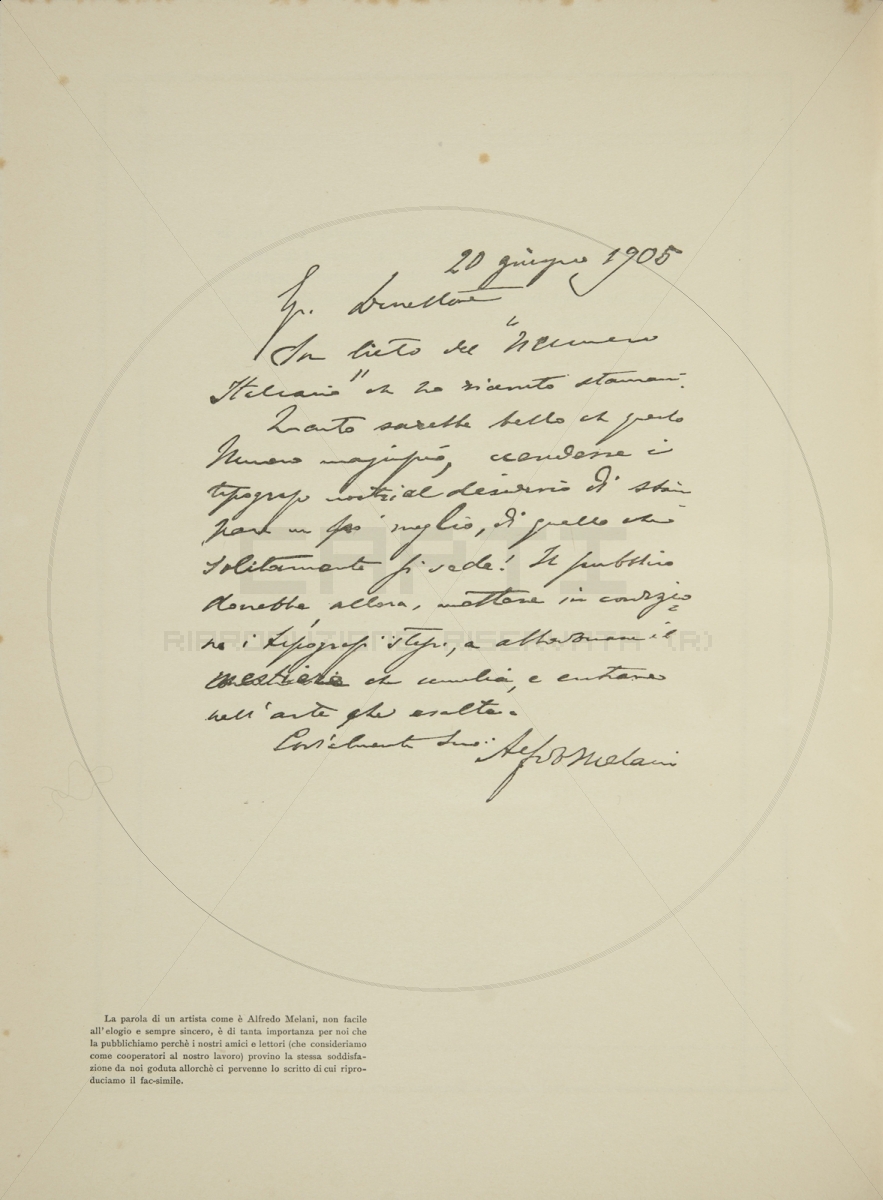 20 giugno 1905
Eg. Direttore
Son lieto del "Numero
Italiano" che ho ricevuto stamani.
Quanto sarebbe bello che questo
Numero magnifico, accendesse i
tipografi nostri al desiderio di stam
pare un po' meglio, di quello che
solitamente si vede! Il pubblico
dovrebbe, allora, mettere in condizio
ne i tipografi stessi, a abbandonare il
mestiere che umilia, e entrare
nell'arte che esalta.
Cordialmente Suo: Alfredo Melani
CARTI
RIPRODUZIONE RISERVATA (R)
La parola di un artista come è Alfredo Melani, non facile
all'elogio e sempre sincero, è di tanta importanza per noi che
la pubblichiamo perchè i nostri amici e lettori (che consideriamo
come cooperatori al nostro lavoro) provino la stessa soddisfa-
zione da noi goduta allorchè ci pervenne lo scritto di cui ripro-
duciamo il fac-simile.